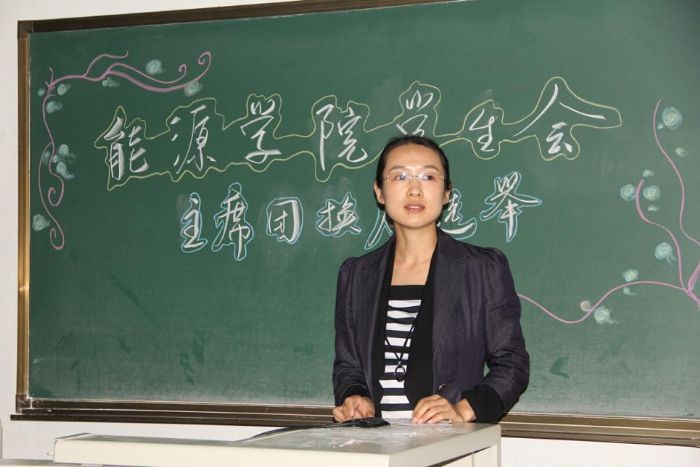 能源学院学生会
主席团换选举